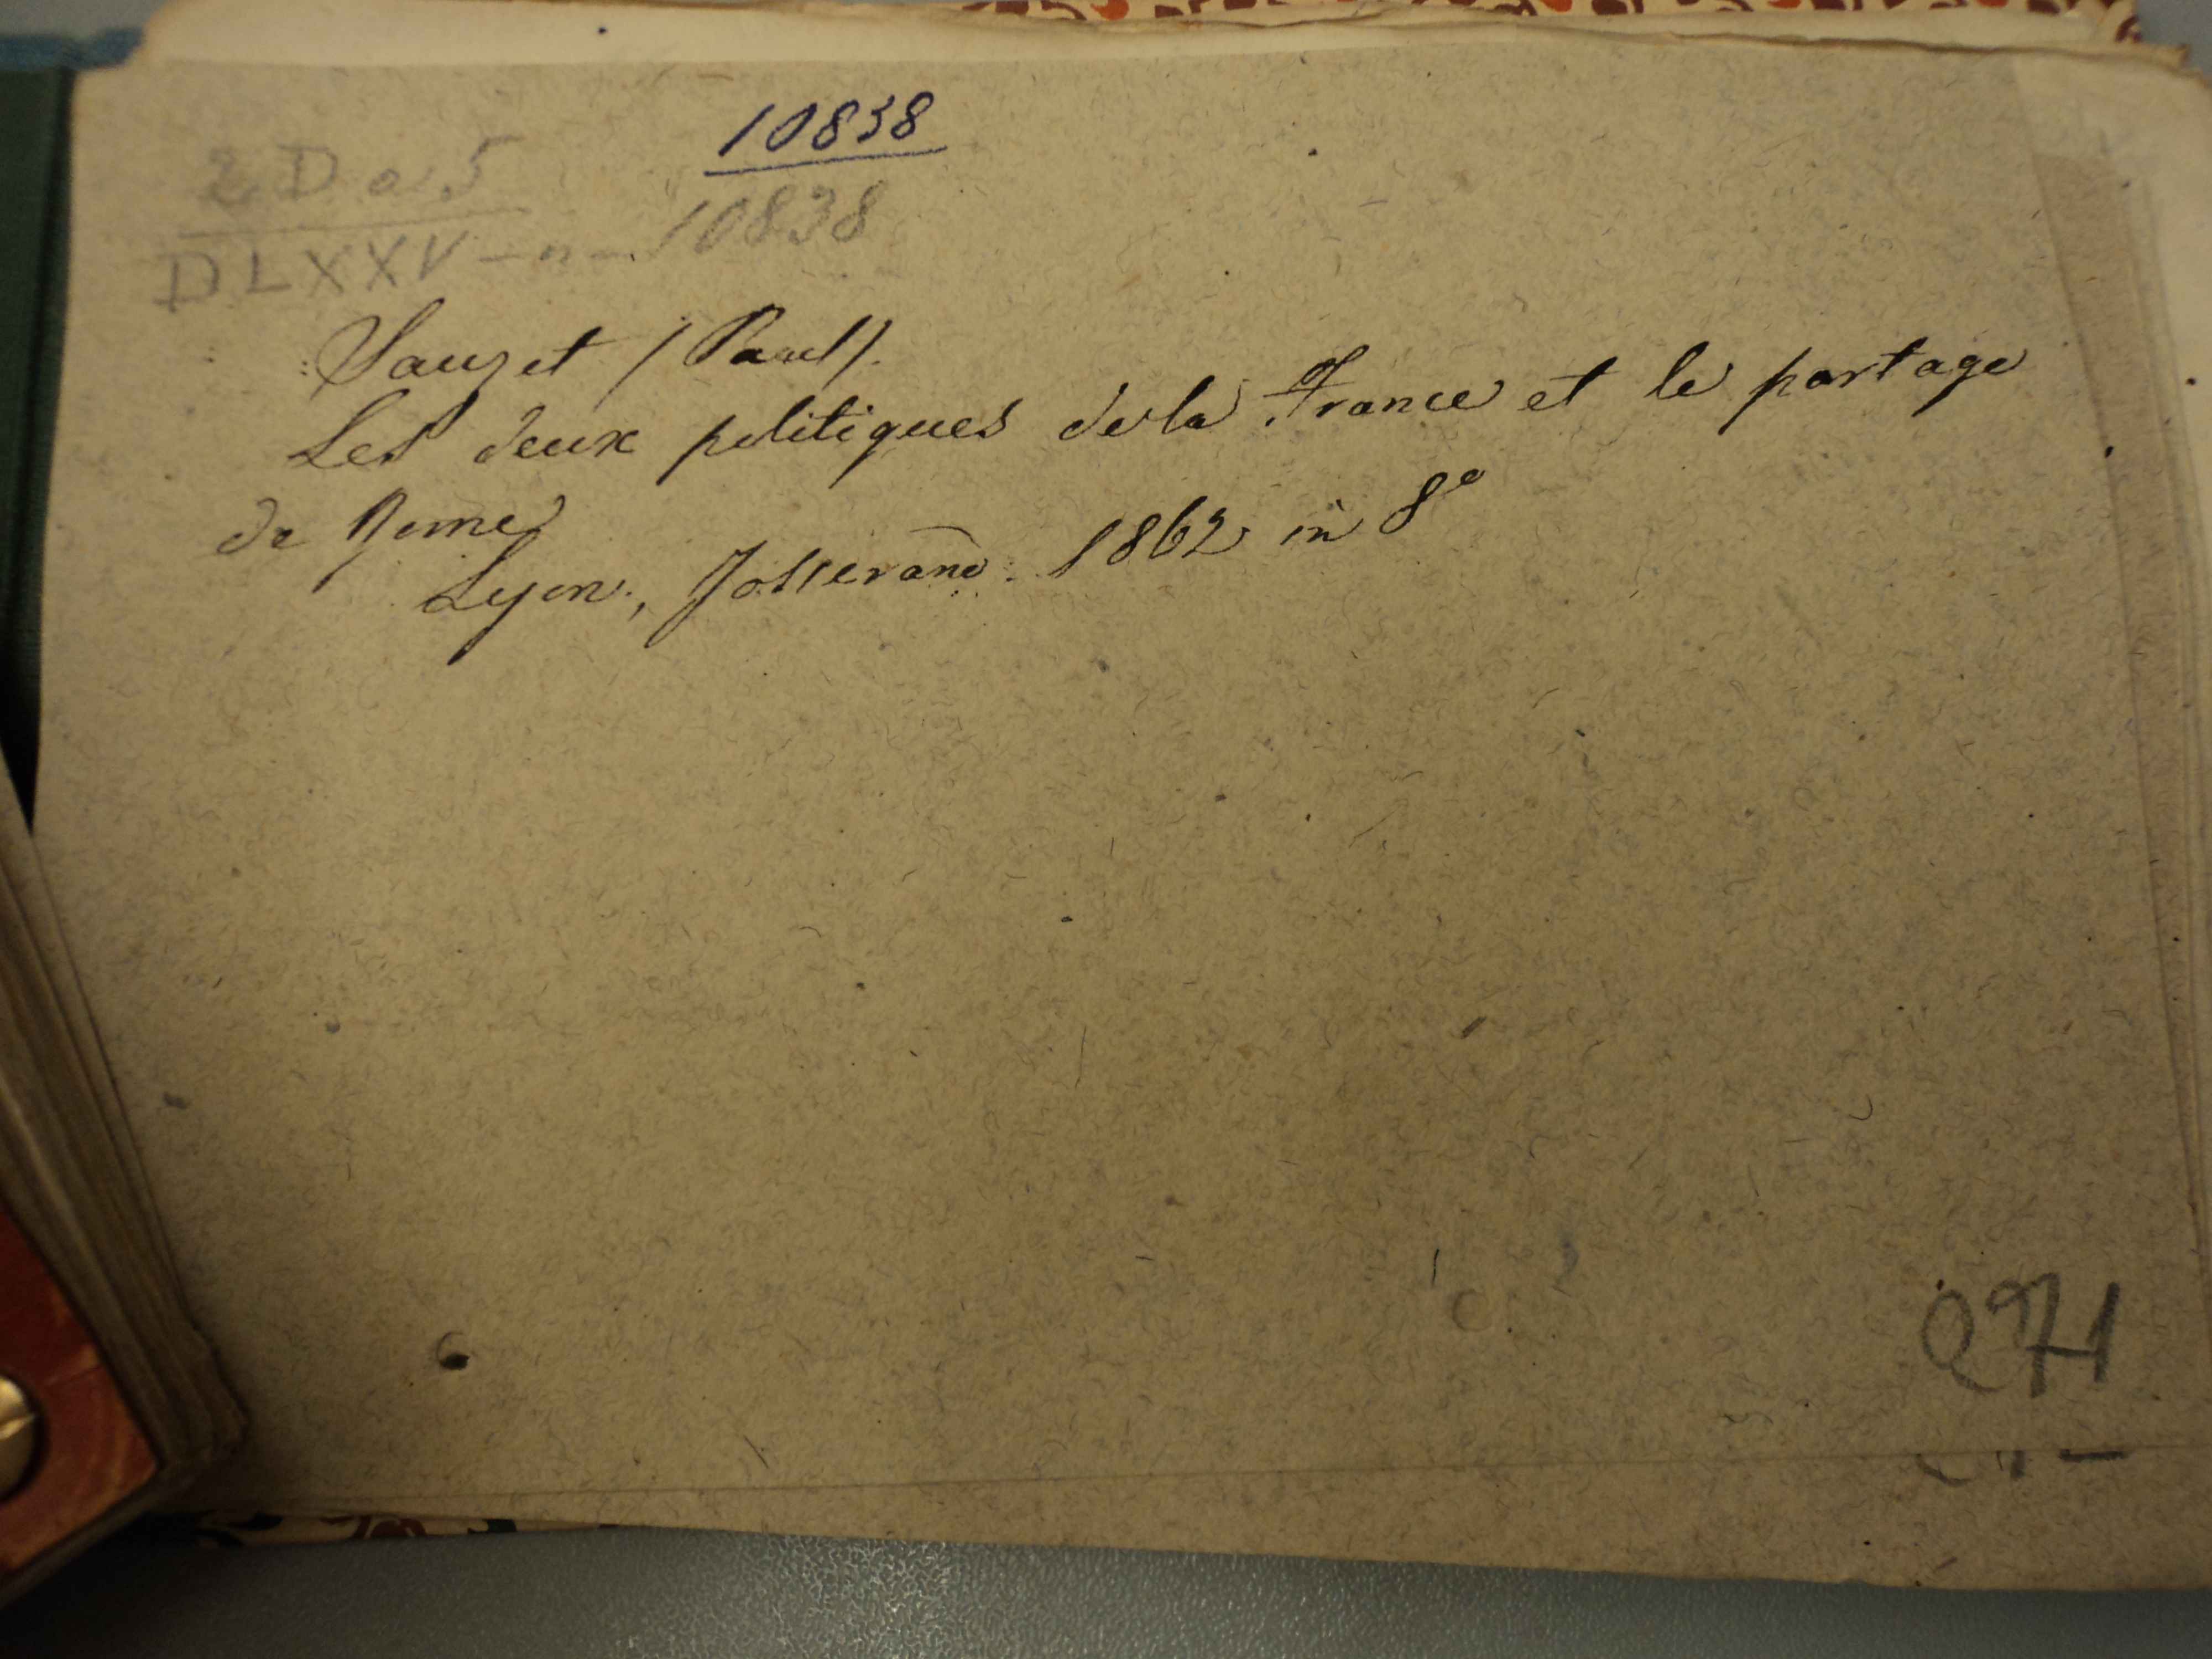 10838
2 D a 5
DLXXV - n - 10838
Sauzet (Paul).
Les deux politiques de la France et le partage
de Rome
Lyon, Josserand. 1862 in 8º
271